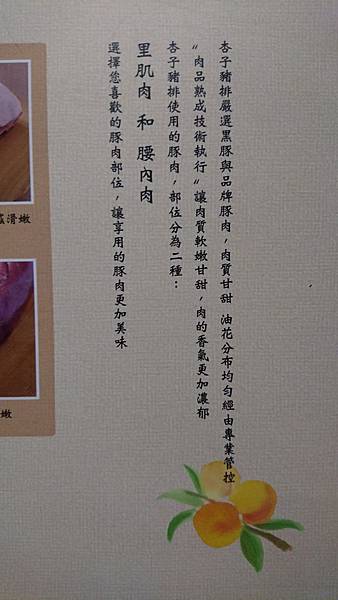 杏子豬排嚴選黑豚與品牌豚肉，肉質甘甜 油花分布均勻經由專業管控
"肉品熟成技術執行"讓肉質軟嫩甘甜，肉的香氣更加濃郁
杏子豬排使用的豚肉，部位分為二種：
里肌肉 和 腰內肉
選擇您喜歡的豚肉部位，讓享用的豚肉更加美味
滑嫩
嫩